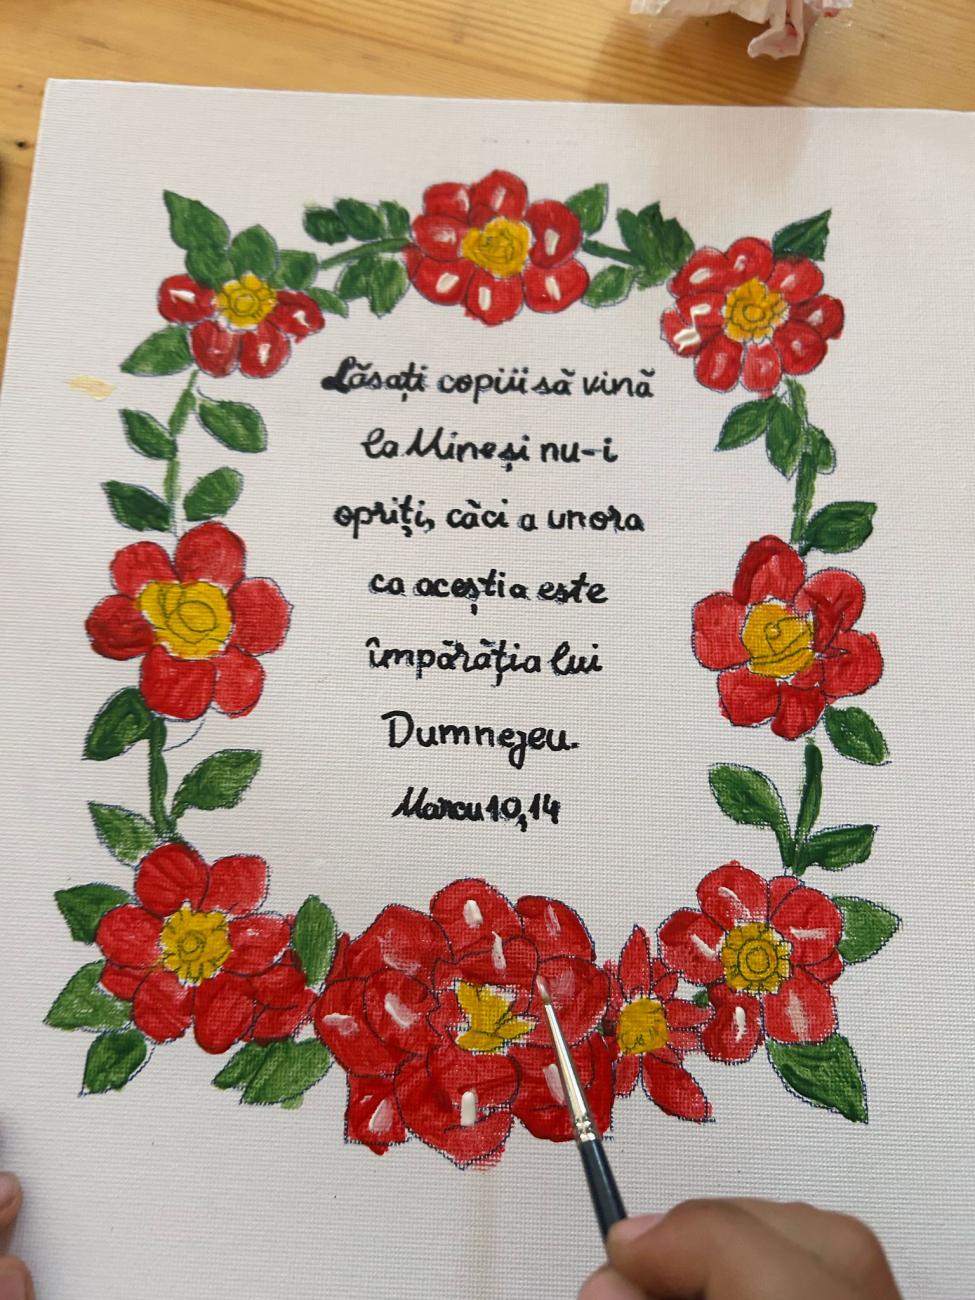 Lăsați copiii să vină
la Mine și nu-i
opriți, căci a unora
ca aceștia este
împărăția lui
Dumnezeu.
Marcu 10,14